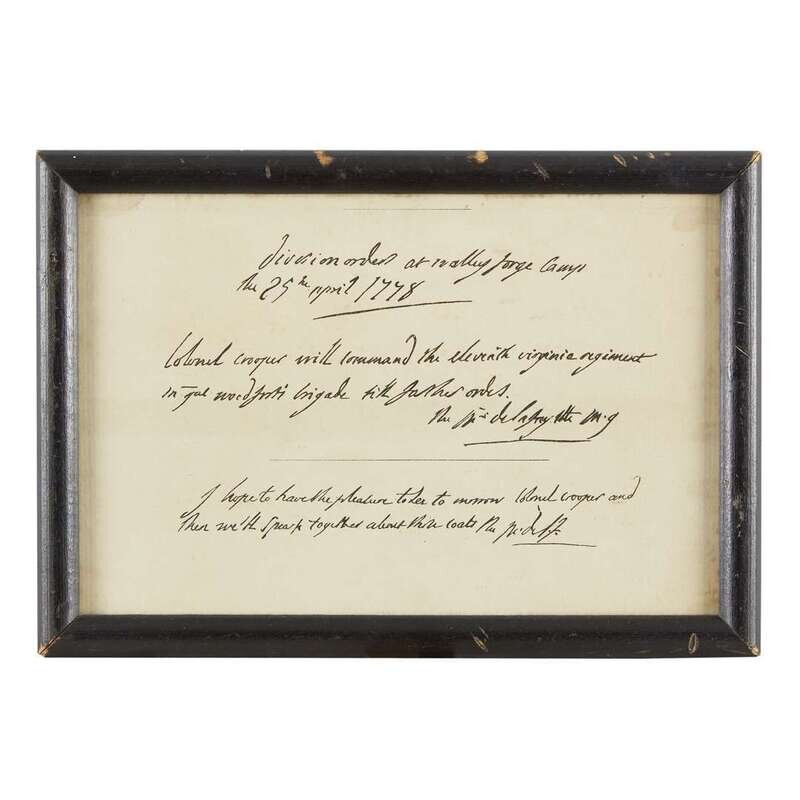 division orders at valley forge Camp
the 25th april 1778
Colonel crooper will command the eleventh virginia regiment
in gal woodfort's brigade till further ordes.
the Mis de lafayette M.g
I hope to have the pleasure to see to morrow Colonel crooper and
then we'll speak together about their coats the M. de lf.